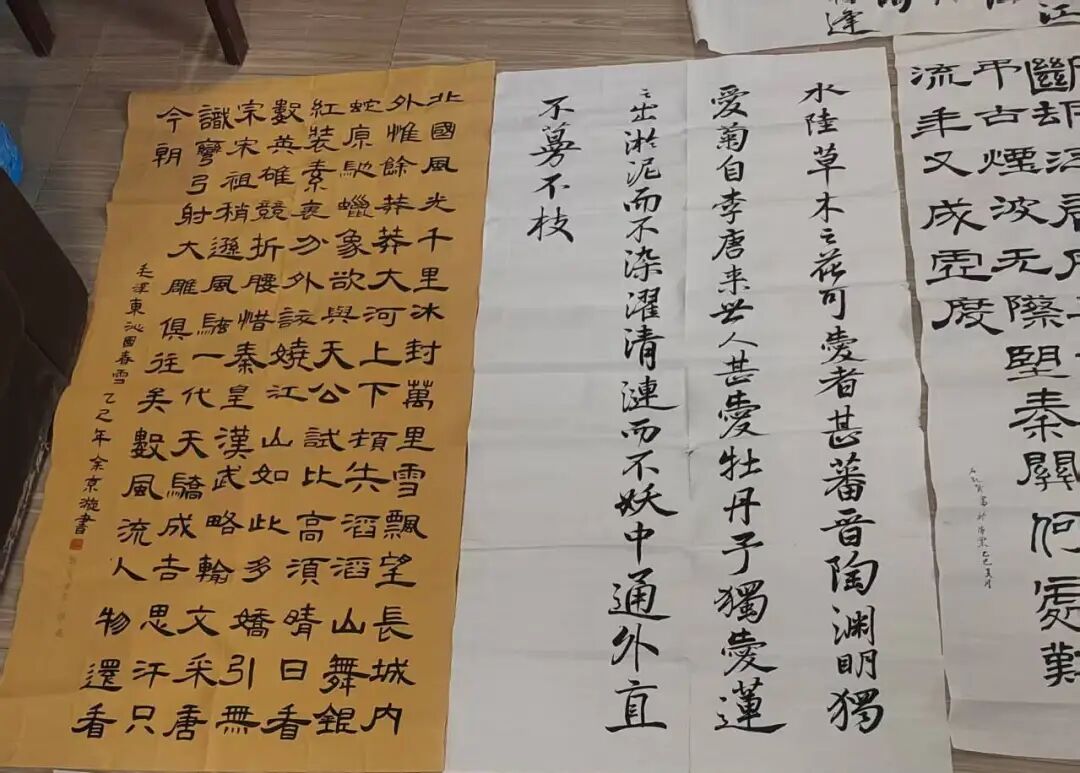 江
逢
江
弔古煙波无際望秦關何處難
流年又成虛度
水陸草木之花可愛者甚蕃晉陶渊明獨
愛菊自李唐来世人甚愛牡丹予獨愛蓮
之出淤泥而不染濯清漣而不妖中通外直
不蔓不枝
北國風光千里冰封萬里雪飄望長城内
外惟餘莽莽大河上下頓失滔滔山舞銀
蛇原馳蠟象欲與天公試比高須晴日看
紅裝素裹分外該嬈江山如此多嬌引無
數英雄競折腰惜秦皇漢武略輸文采唐
宗宋祖稍遜風騷一代天驕成吉思汗只
識彎弓射大雕俱往矣數風流人物還看
今朝
毛澤東沁園春雪乙巳年余京漩書